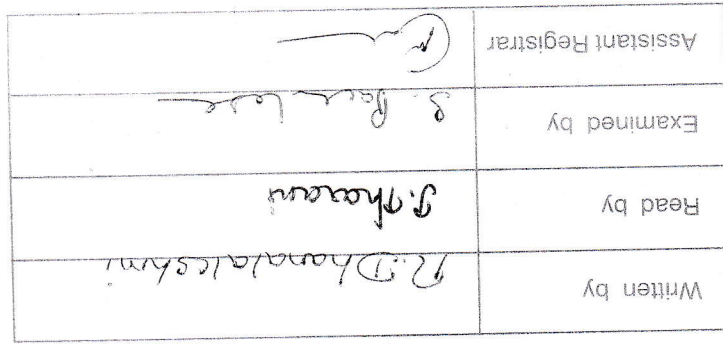 Written by R. Dhanalakshmi
Read by J. Tharani
Examined by S.
Assistant Registrar